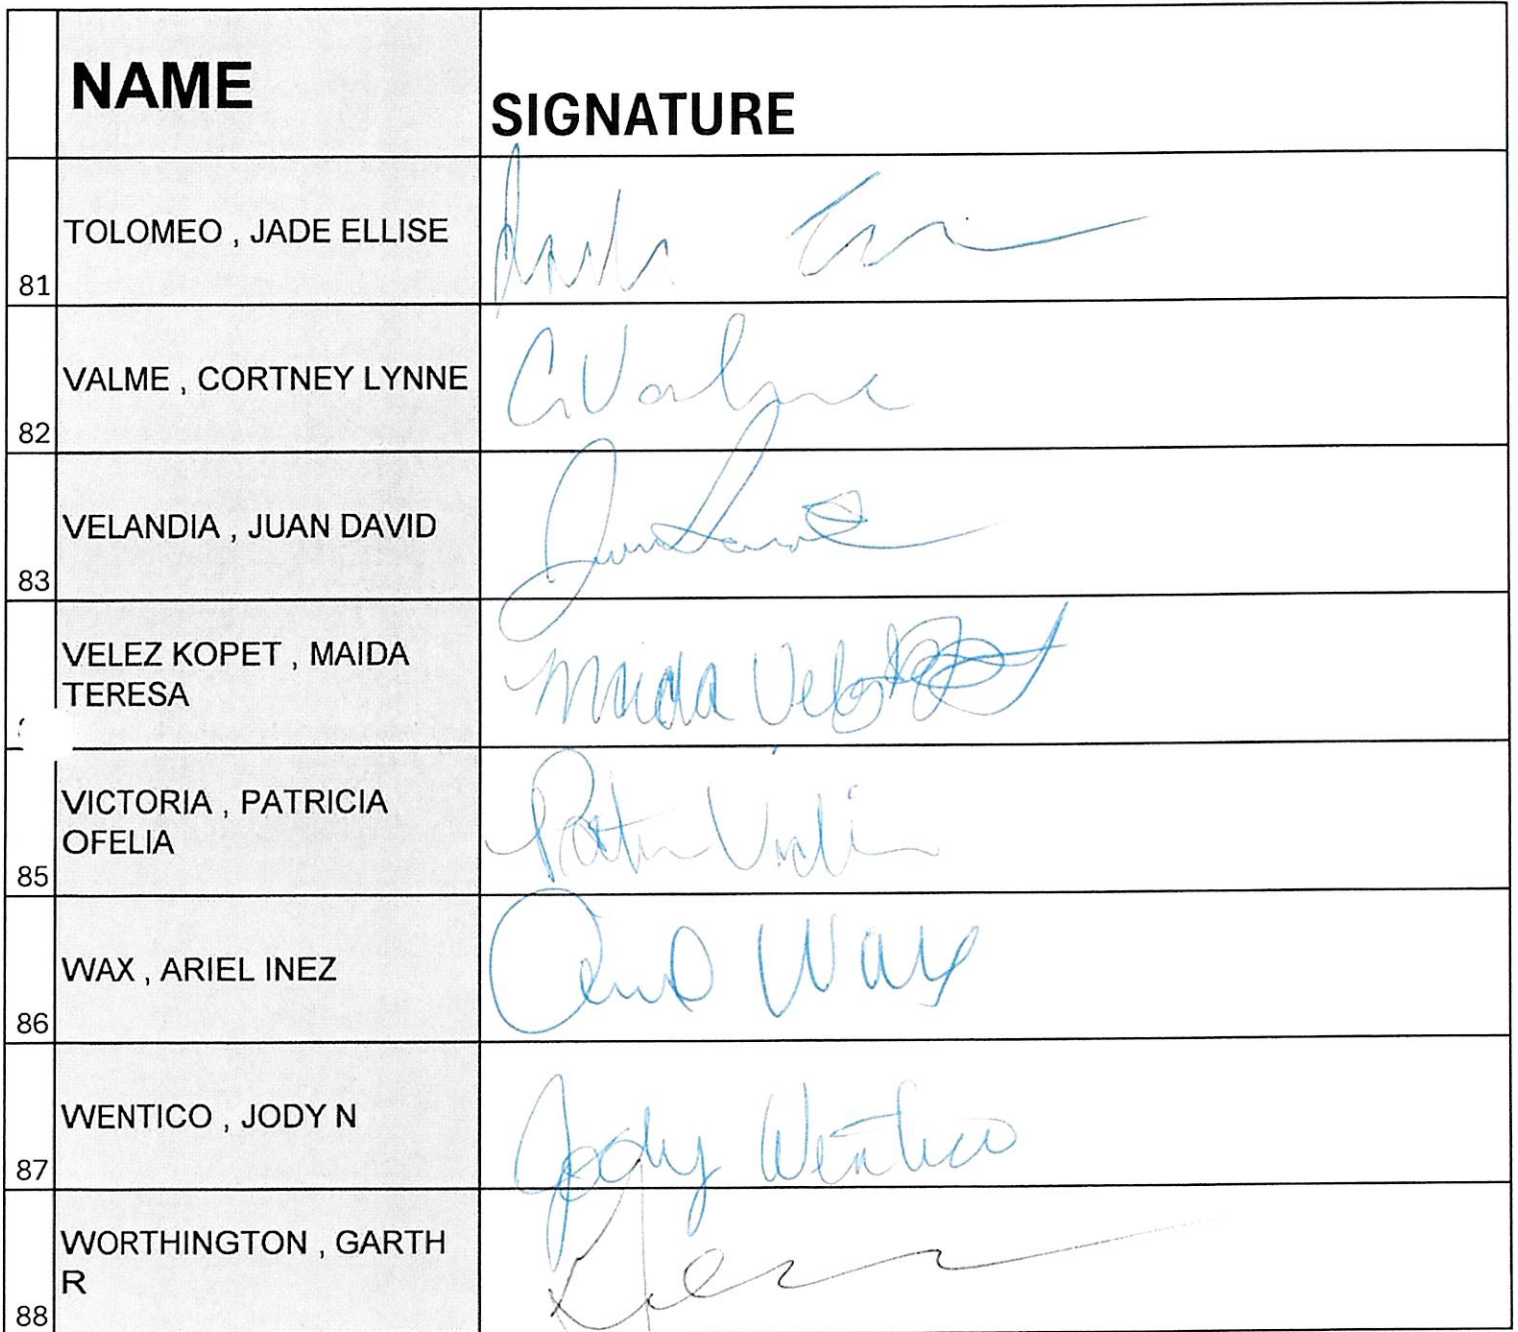 NAME
SIGNATURE
TOLOMEO , JADE ELLISE
81
VALME , CORTNEY LYNNE
C Valme
82
VELANDIA , JUAN DAVID
83
VELEZ KOPET , MAIDA
TERESA
Maida Velez
VICTORIA , PATRICIA
OFELIA
85
WAX , ARIEL INEZ
Ariel Wax
86
WENTICO , JODY N
Jody Wentico
87
WORTHINGTON , GARTH
R
88